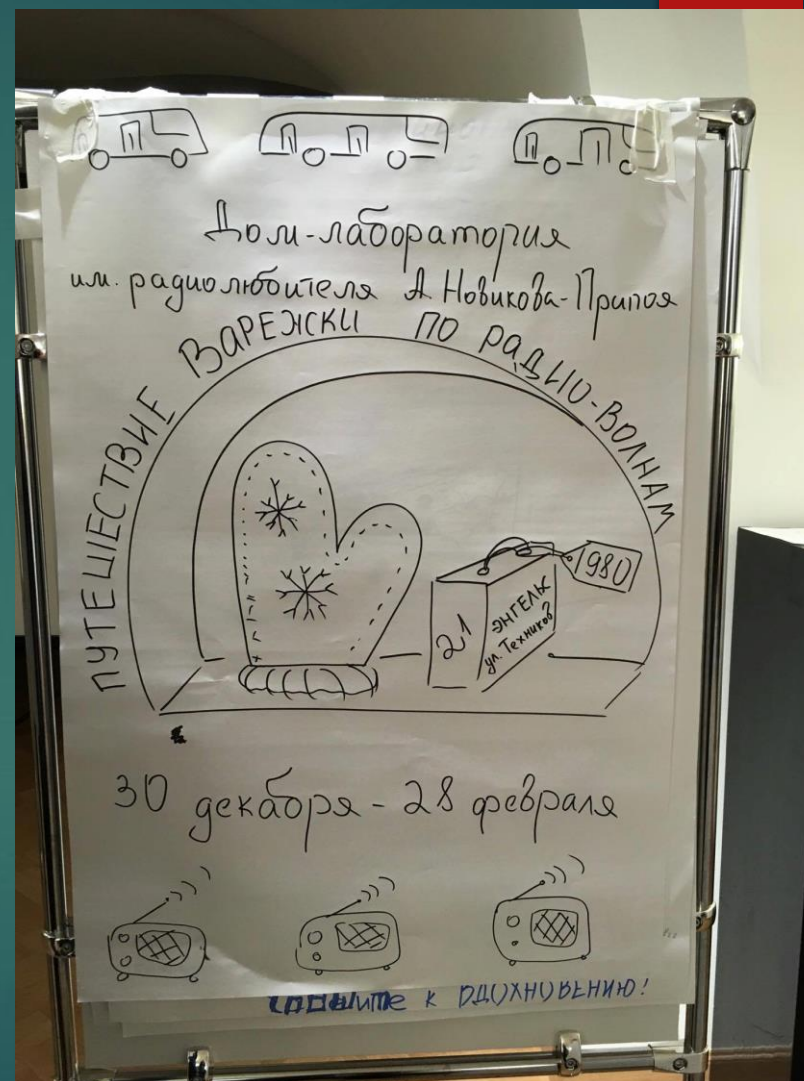 Дом-лаборатория
им. радиолюбителя А. Новикова-Припоя
ПУТЕШЕСТВИЕ ВАРЕЖКИ ПО РАДИО-ВОЛНАМ
1980
21
ЭНГЕЛЬС
ул. Техников
30 декабря - 28 февраля
к ВДОХНОВЕНИЮ!